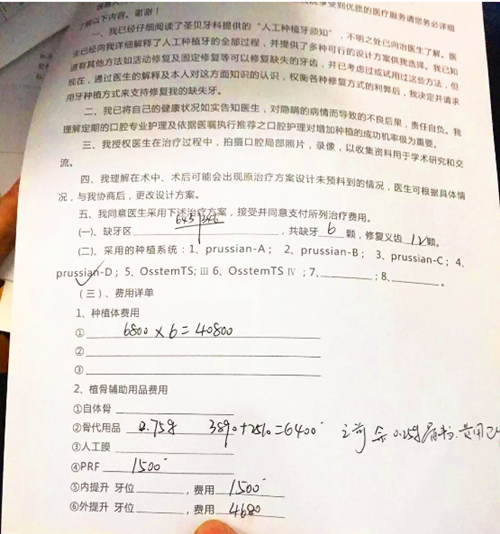 享受到优质的医疗服务请您务必详细
了解以下内容。谢谢！
一、我已经仔细阅读了圣贝牙科提供的“人工种植牙须知”，不明之处已向治医生了解。医
生已经向我详细解释了人工种植牙的全部过程，并提供了多种可行的设计方案供我选择。我已知
道有其他方法如活动修复及固定修复等可以修复缺失的牙齿，并已考虑过或试用过这些方法，但
现在，通过医生的解释及本人对这方面知识的认识，权衡各种修复方式的利弊后，我决定并请求
用牙种植方式来支持修复我的缺失牙。
二、我已将自己的健康状况如实告知医生，对隐瞒的病情而导致的不良后果，责任自负。我
理解定期的口腔专业护理及依据医嘱执行推荐之口腔护理对增加种植的成功机率极为重要。
三、我授权医生在治疗过程中，拍摄口腔局部照片，录像，以收集资料用于学术研究和交
流。
四、我理解在术中、术后可能会出现原治疗方案设计未预料到的情况，医生可根据具体情
况，与我协商后，更改设计方案。
五、我同意医生采用下述治疗方案，接受并同意支付所列治疗费用。
(一)、缺牙区 643 346 ，共缺牙 6 颗，修复义齿 12 颗。
(二)、采用的种植系统：1、prussian-A； 2、prussian-B； 3、prussian-C；4、
prussian-D；5、OsstemTS; Ⅲ 6、OsstemTS Ⅳ ；7、 ；8、 。
（三）、费用详单
1、种植体费用
① 6800×6=40800
②
③
2、植骨辅助用品费用
①自体骨
②骨代用品 0.75g 3890+2510=6400 之前 余 0.25g骨粉.费用已
③人工膜
④PRF 1500
⑤内提升 牙位 ，费用 1500
⑥外提升 牙位 ，费用 4680